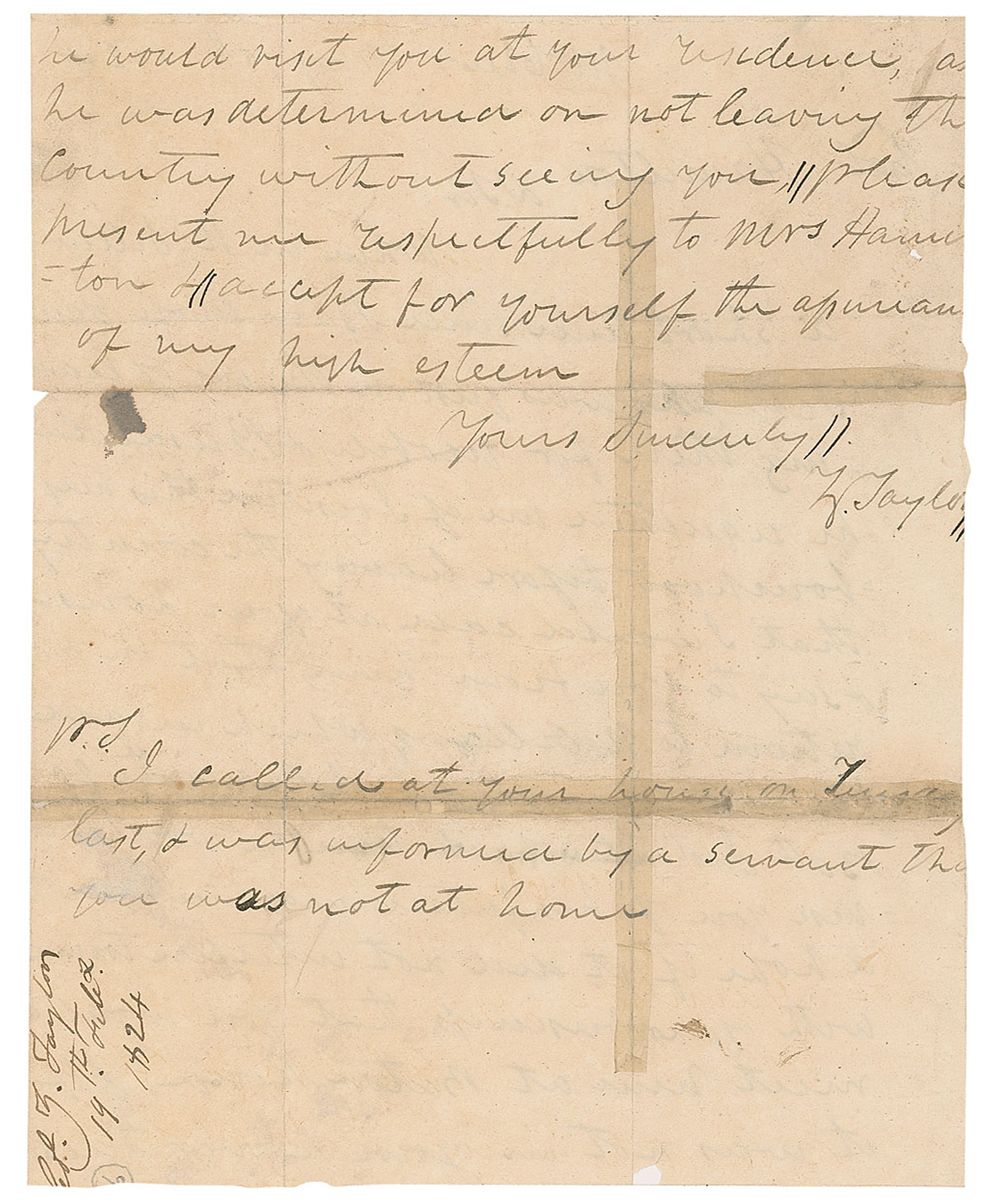 he would visit you at your residence, as
he was determined on not leaving th
Country without seeing you, // pleas
present me respectfully to Mrs Hamil
-ton & // accept for yourself the
of my high esteem
Yours Sincerely //.
Z. Taylor //
P.S
I called at your house on
last, & was informed by a servant tha
you was not at home
Z. Taylor
19th Feb.
1824